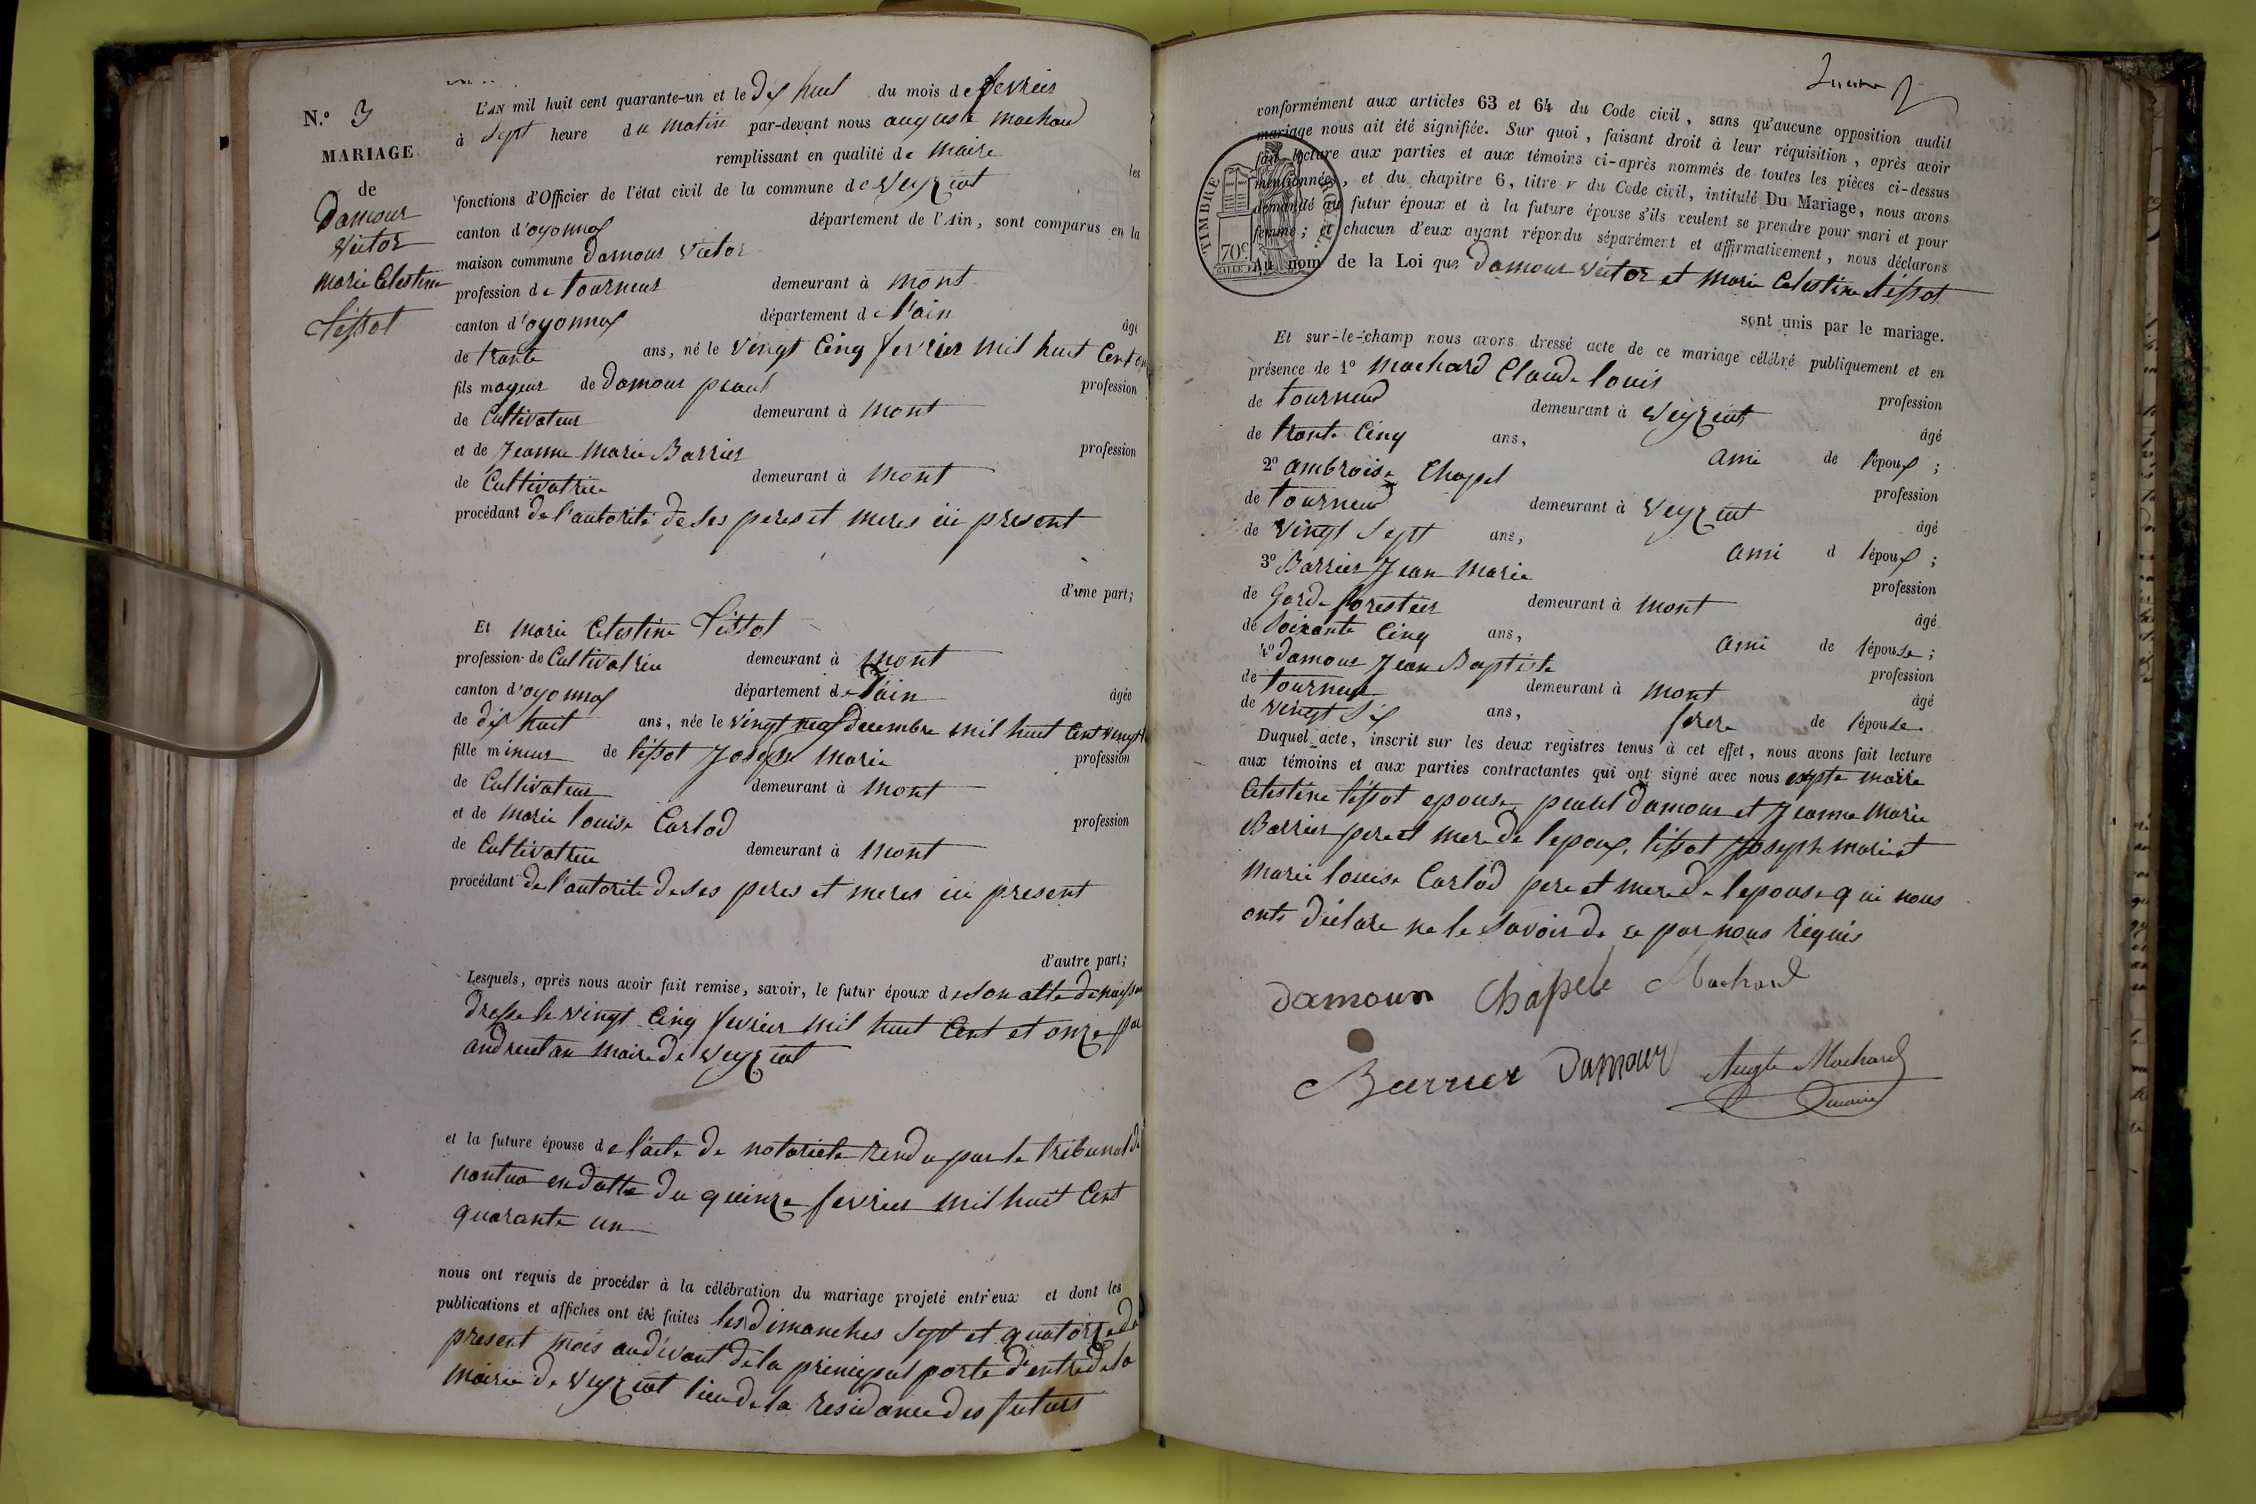 N.º 3
MARIAGE
de
Damour
Victor
Marie Celestine
Tissot
L'AN mil huit cent quarante-un et le dix huit du mois de fevrier
à sept heure du matin par-devant nous auguste machard
remplissant en qualité de maire les
fonctions d'Officier de l'état civil de la commune de Veyziat
canton d'oyonnax département de l'Ain, sont comparus en la
maison commune Damour Victor
profession de tourneur demeurant à mont
canton d'oyonnax département de l'ain âgé
de trante ans, né le vingt cinq fevrier mil huit cent onze
fils mageur de Damour profession
de Cultivateur demeurant à mont
et de Jeanne Marie Barrier profession
de Cultivatrice demeurant à mont
procédant de l'autorité de ses peres et meres ici present
d'une part;
Et Marie Celestine Tissot
profession de Cultivatrice demeurant à mont
canton d'oyonnax département de l'ain âgée
de dix huit ans, née le vingt neuf decembre mil huit cent vingt
fille mineur de tissot Joseph Marie profession
de Cultivateur demeurant à mont
et de Marie louise Carlod profession
de Cultivatrice demeurant à mont
procédant de l'autorité de ses peres et meres ici present
d'autre part;
Lesquels, après nous avoir fait remise, savoir, le futur époux de son atte de naissan
dresse le vingt cinq fevrier mil huit cent et onze par
maire de Veyziat
et la future épouse de l'acte de notoriete rendu par le tribunal de
nantua en datte du quinze fevrier mil huit cent
quarante un
nous ont requis de procéder à la célébration du mariage projeté entr'eux et dont les
publications et affiches ont été faites les dimanches sept et quatorze du
present mois au devant de la principal porte d'entre de la
mairie de Veyziat lieu de la residance des futurs
conformément aux articles 63 et 64 du Code civil, sans qu'aucune opposition audit
mariage nous ait été signifiée. Sur quoi, faisant droit à leur réquisition, après avoir
fait lecture aux parties et aux témoins ci-après nommés de toutes les pièces ci-dessus
mentionnées, et du chapitre 6, titre v du Code civil, intitulé Du Mariage, nous avons
demandé au futur époux et à la future épouse s'ils veulent se prendre pour mari et pour
femme; et chacun d'eux ayant répondu séparément et affirmativement, nous déclarons
Au nom de la Loi que Damour Victor et Marie Celestine tissot
sont unis par le mariage.
TIMBRE ROYAL.
70c
Et sur-le-champ nous avons dressé acte de ce mariage célébré publiquement et en
présence de 1º Machard Claude louis profession
de tourneur demeurant à Veyziat âgé
de trante cinq ans, ami de l'époux;
2º ambroise Chapel profession
de tourneur demeurant à Veyziat âgé
de vingt sept ans, ami d l'époux;
3º Barrier Jean Marie profession
de Garde forestier demeurant à mont âgé
de soixante cinq ans, ami de l'épouse;
4º damour Jean Baptiste profession
de tourneur demeurant à mont âgé
de vingt six ans, frere de l'épouse.
Duquel acte, inscrit sur les deux registres tenus à cet effet, nous avons fait lecture
aux témoins et aux parties contractantes qui ont signé avec nous expte Marie
Celestine tissot epouse, Damour et Jeanne Marie
Barrier pere et mere de l'epoux, tissot Joseph marie et
Marie louise Carlod pere et mere de l'epouse qui nous
onts déclare ne le savoir de ce par nous réquis
Damour Chapele Machard
Barrier Damour Augte Machard
maire